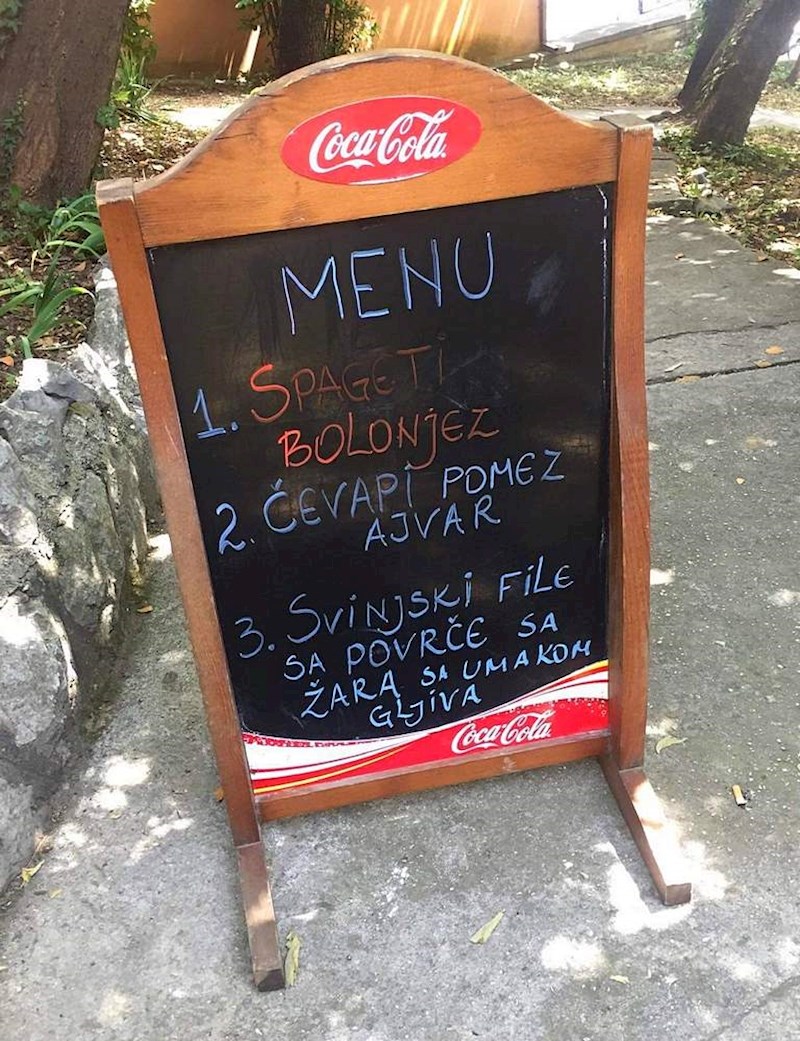 Coca-Cola
MENU
1. ŠPAGETI
BOLONJEZ
2. ČEVAPI POMEZ
AJVAR
3. SVINJSKI FILE
SA POVRČE SA
ŽARA SA UMAKOM
GLJIVA
Coca-Cola